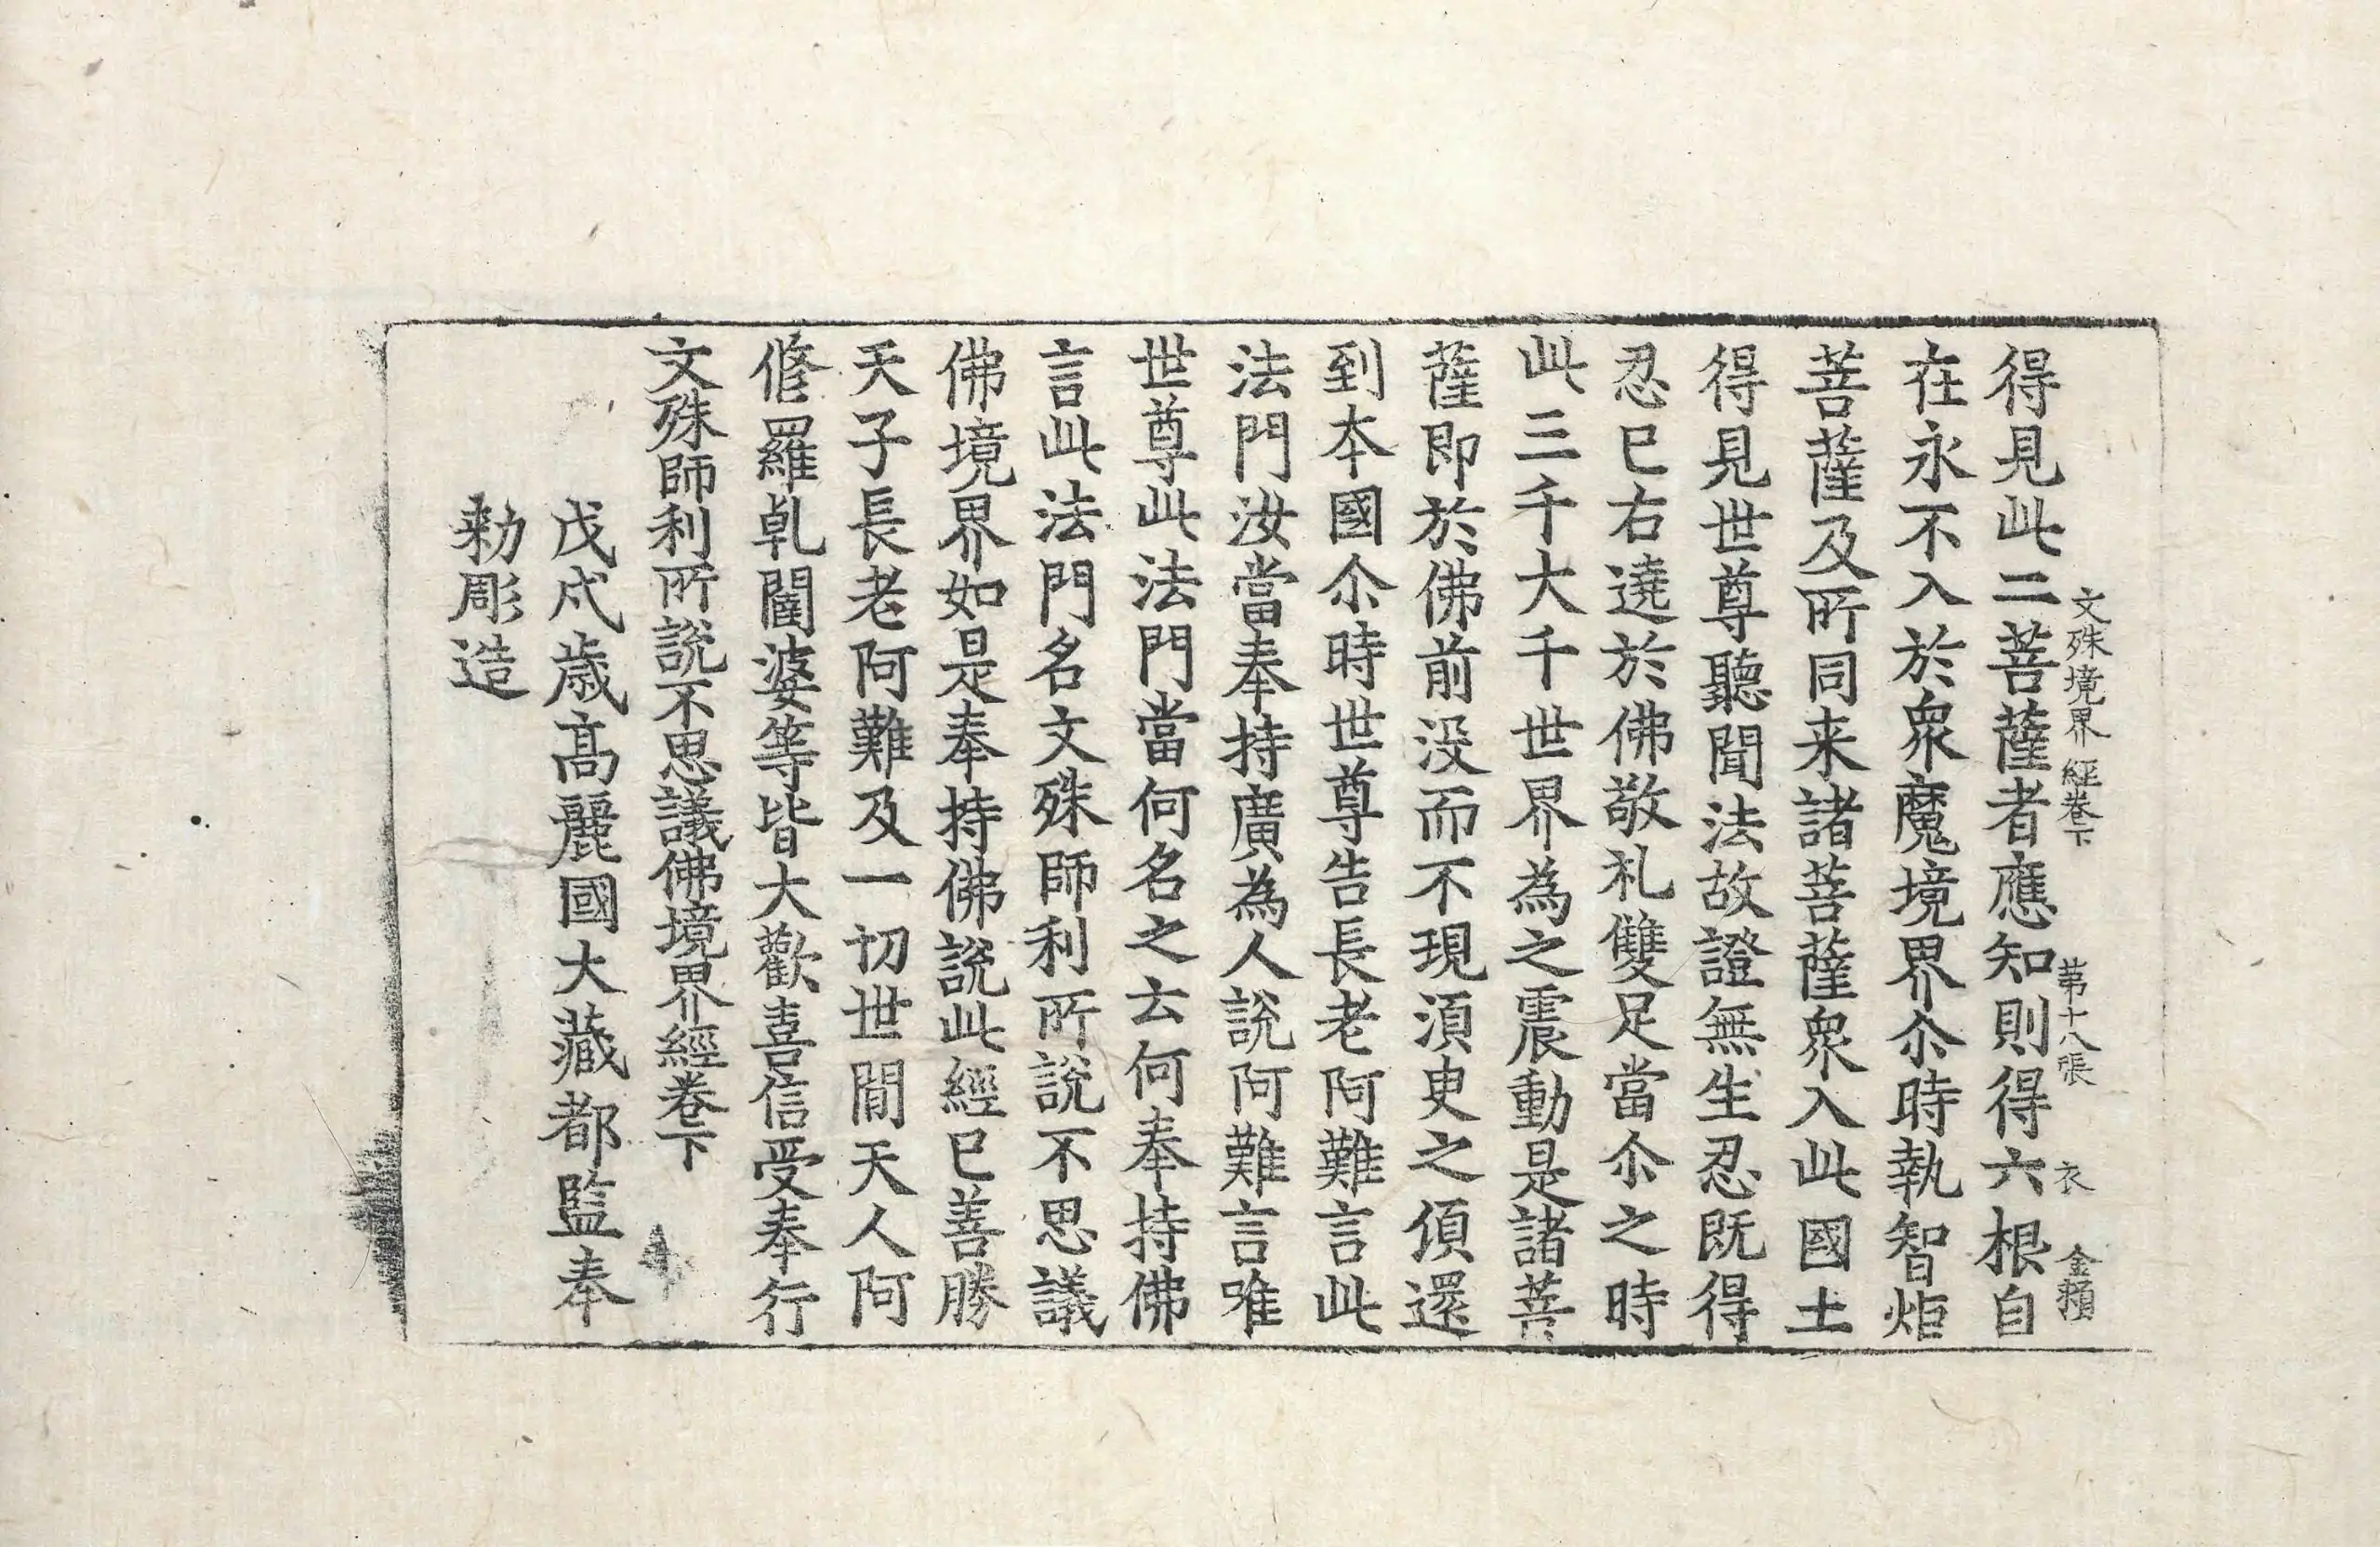 文殊境界經卷下 第十八張 衣 金賴
得見此二菩薩者應知則得六根自
在永不入於衆魔境界尒時執智炬
菩薩及所同来諸菩薩衆入此國土
得見世尊聽聞法故證無生忍既得
忍已右遶於佛敬礼雙足當尒之時
此三千大千世界為之震動是諸菩
薩即於佛前没而不現湏臾之傾還
到本國尒時世尊告長老阿難言此
法門汝當奉持廣為人說阿難言唯
世尊此法門當何名之云何奉持佛
言此法門名文殊師利所說不思議
佛境界如是奉持佛說此經已善勝
天子長老阿難及一切世間天人阿
脩羅乹闥婆等皆大歡喜信受奉行
文殊師利所說不思議佛境界經卷下
戊戌歲高麗國大藏都監奉
勑彫造